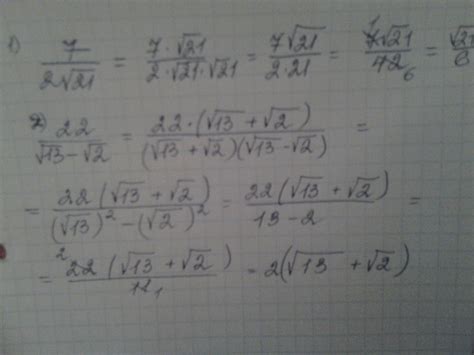 1) 7/(2√21) = (7·√21)/(2·√21·√21) = (7√21)/(2·21) = (7√21)/42 = √21/6
2) 22/(√13-√2) = (22·(√13+√2))/((√13+√2)(√13-√2)) =
= (22(√13+√2))/((√13)²-(√2)²) = (22(√13+√2))/(13-2) =
= (22(√13+√2))/11 = 2(√13+√2)